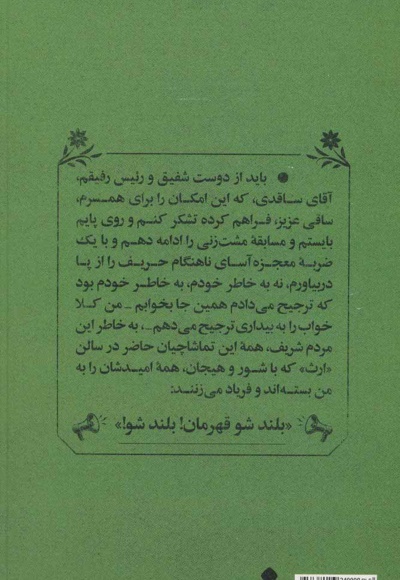 ● باید از دوست شفیق و رئیس رفیقم،
آقای ساقدی، که این امکان را برای همسرم،
ساقی عزیز، فراهم کرده تشکر کنم و روی پایم
بایستم و مسابقهٔ مشت‌زنی را ادامه دهم و با یک
ضربهٔ معجزه‌آسای ناهنگام حریف را از پا
دربیاورم، نه به خاطر خودم، به خاطر خودم بود
که ترجیح می‌دادم همین جا بخوابم _ من کلا
خواب را به بیداری ترجیح می‌دهم _، به خاطر این
مردم شریف، همه این تماشاچیان حاضر در سالن
«ارث» که با شور و هیجان، همه امیدشان را به
من بسته‌اند و فریاد می‌زنند:
«بلند شو قهرمان! بلند شو!»